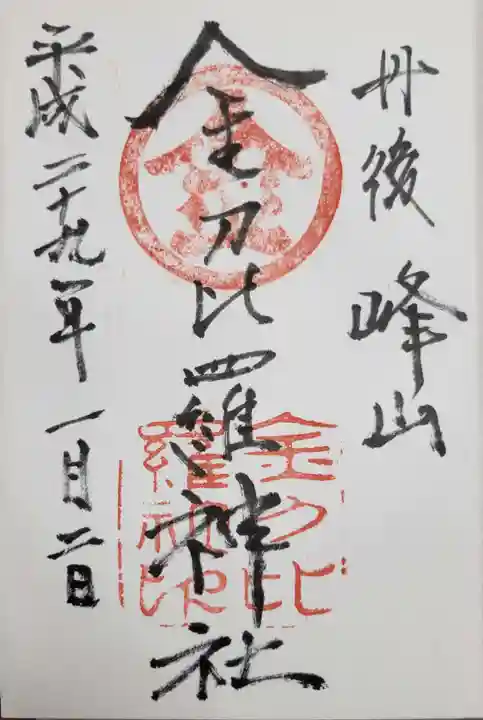 丹後 峰山
金刀比羅神社
平成二十九年 一月二日
金
金刀比
羅神
社印